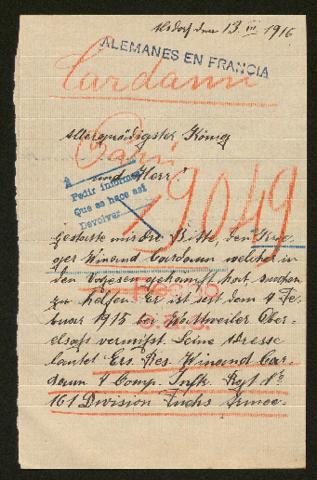 Alsdorf den 13. III 1916
ALEMANES EN FRANCIA
Cardaun
Allergnädigster König
Paris
und Herr!
Pedir informes
Que se hace así
Devolver
19049
gestatte mir die Bitte, den Krie-
ger Winand Cardaun welcher in
den Vogesen gekämpft hat, suchen
zu helfen. Er ist seit dem 4 Fe-
bruar 1915 bei Wattweiler Ober-
elsaß vermißt. Seine Adresse
lautet Ers. Res. Winand Car-
daun 4 Comp. Inft. Regt. No
161 Division Fuchs Armee-